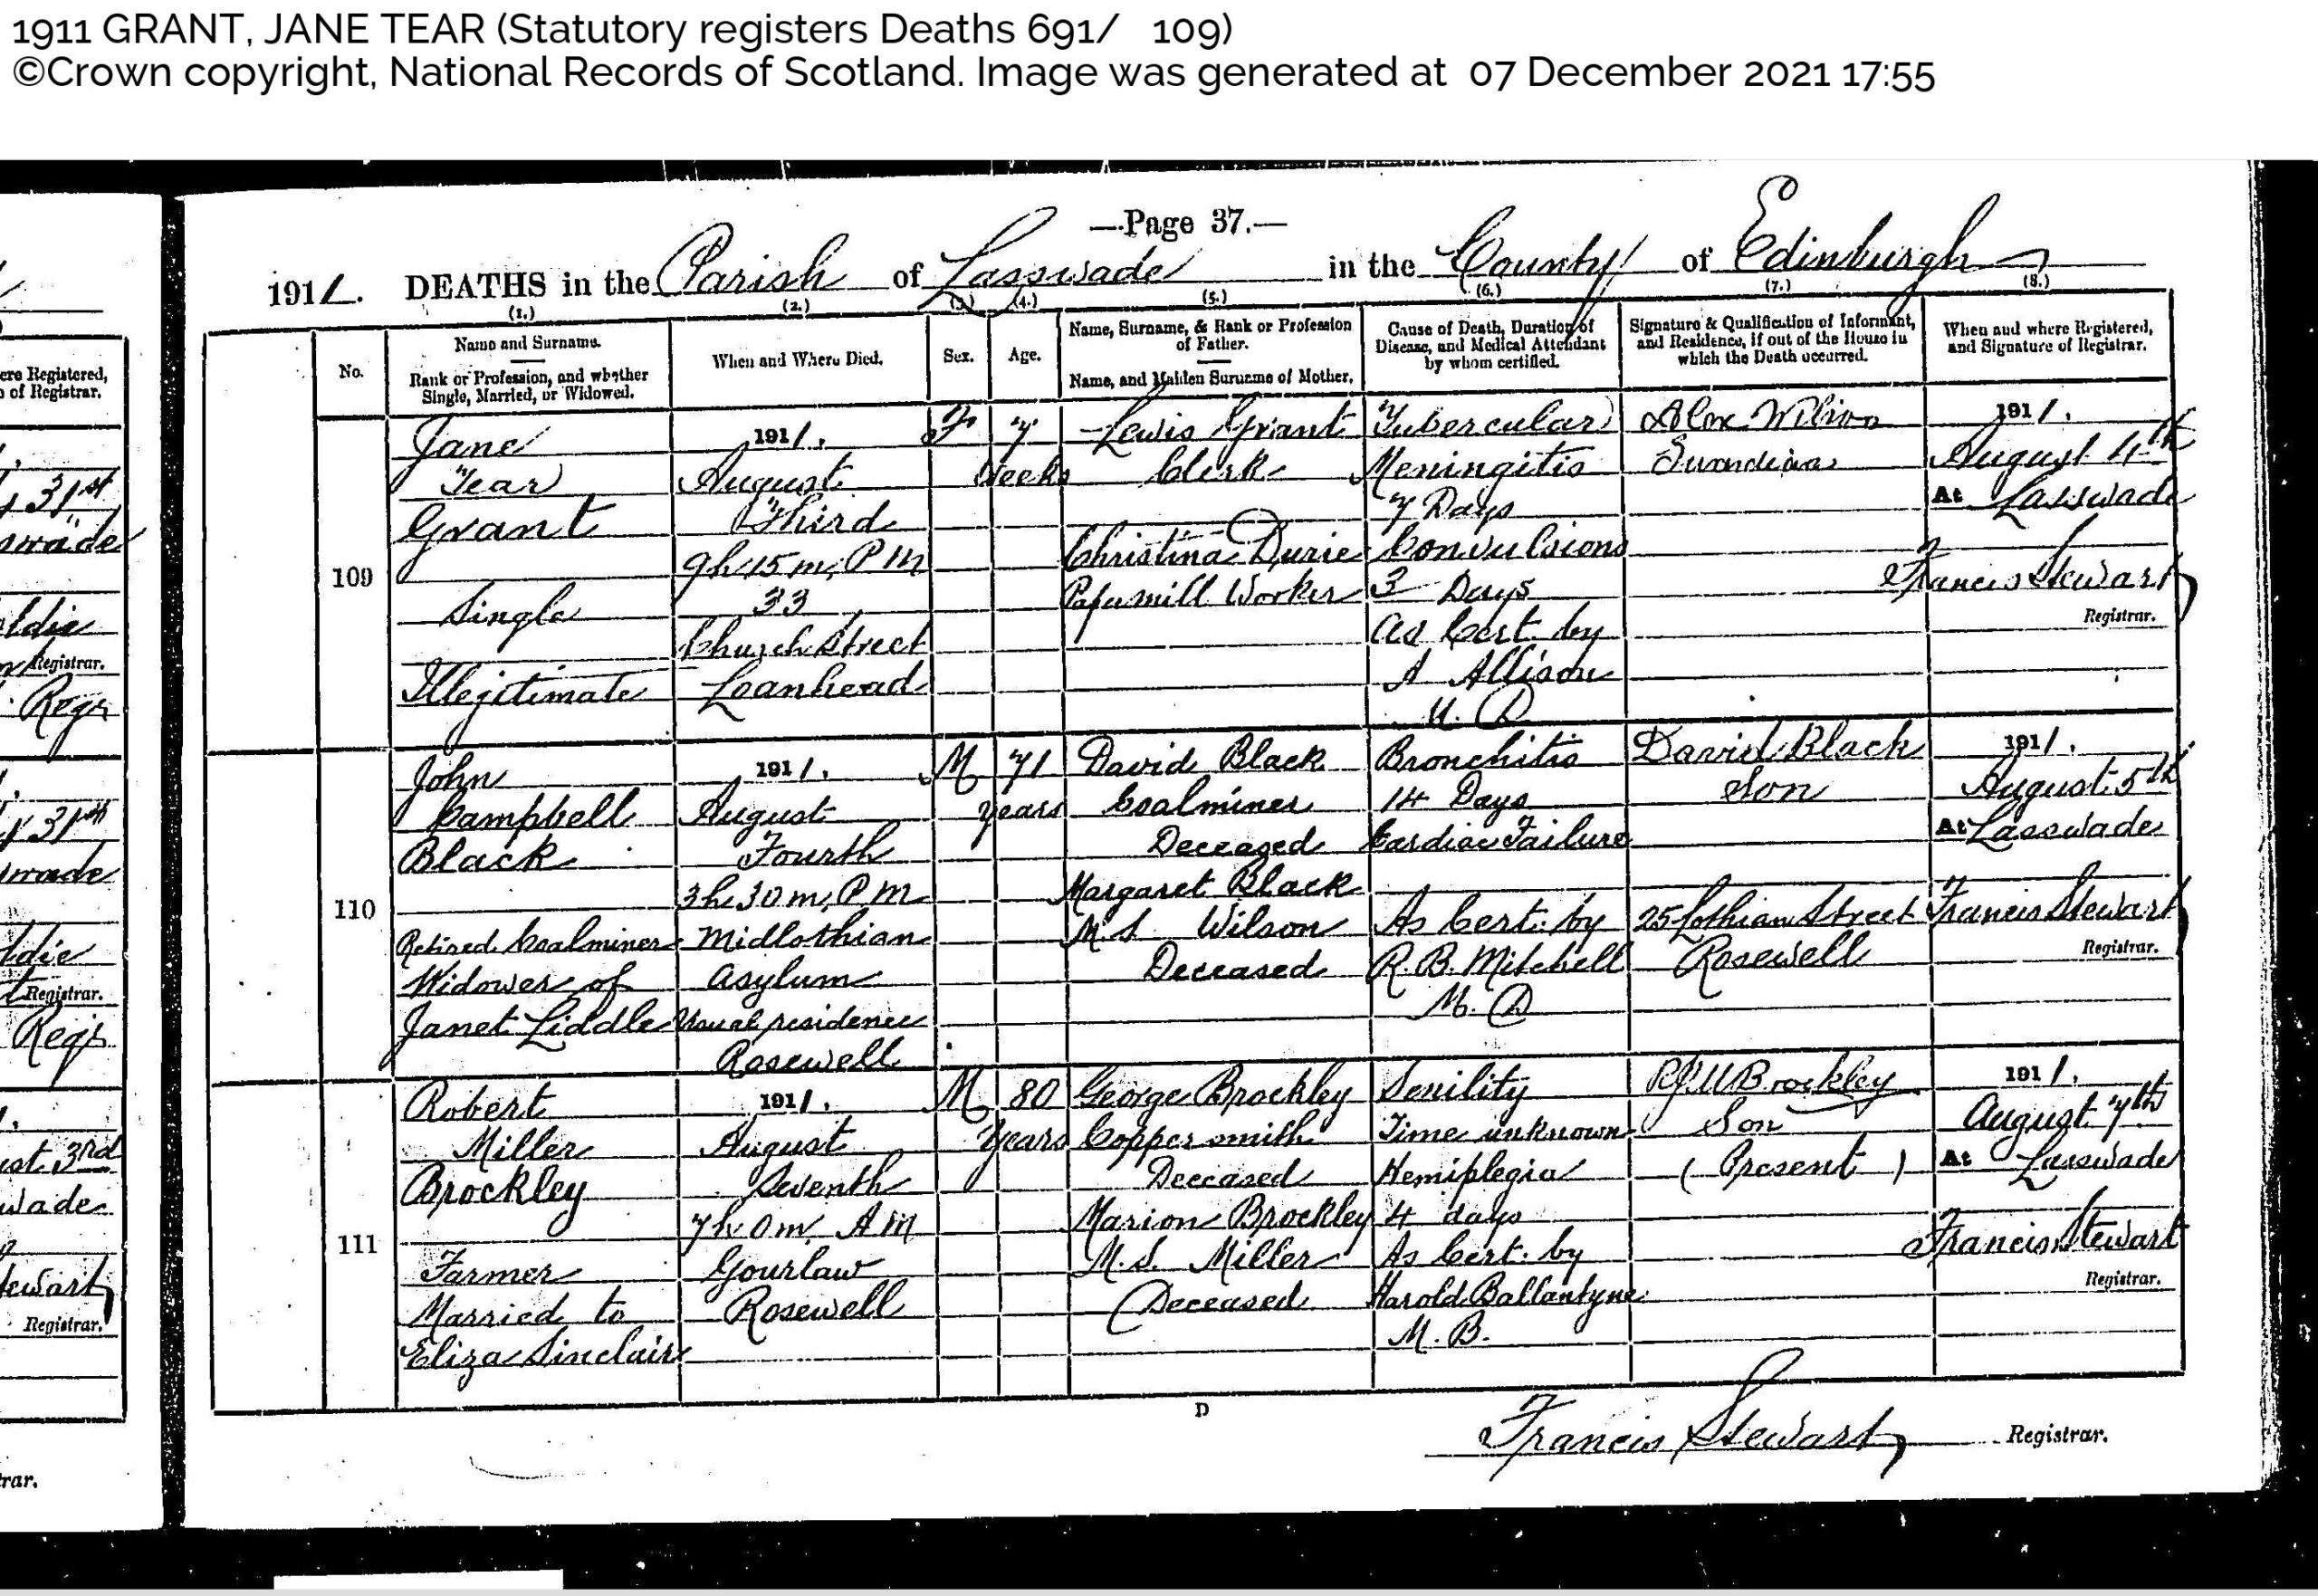 1911 GRANT, JANE TEAR (Statutory registers Deaths 691/ 109)
©Crown copyright, National Records of Scotland. Image was generated at 07 December 2021 17:55
—Page 37.—
1911. DEATHS in the Parish of Lasswade in the County of Edinburgh
(1.) (2.) (3.) (4.) (5.) (6.) (7.) (8.)
No.
Name and Surname.
Rank or Profession, and whether
Single, Married, or Widowed.
When and Where Died.
Sex.
Age.
Name, Surname, & Rank or Profession
of Father.
Name, and Maiden Surname of Mother.
Cause of Death, Duration of
Disease, and Medical Attendant
by whom certified.
Signature & Qualification of Informant,
and Residence, if out of the House in
which the Death occurred.
When and where Registered,
and Signature of Registrar.
109
Jane
Tear
Grant
Single
Illegitimate
1911.
August
Third
9h 15m, PM
33
Church Street
Loanhead
F
7
Weeks
Lewis Grant
Clerk
Christina Durie
Papermill Worker
Tubercular
Meningitis
7 Days
Convulsions
3 Days
As Cert. by
A Allison
M. D
Alex Wilson
Guardian
1911.
August 4th
At Lasswade
Francis Stewart
Registrar.
110
John
Campbell
Black
Retired Coalminer
Widower of
Janet Liddle
1911.
August
Fourth
3h 30m, PM
Midlothian
Asylum
Usual residence
Rosewell
M
71
years
David Black
Coalminer
Deceased
Margaret Black
M.S. Wilson
Deceased
Bronchitis
14 Days
Cardiac Failure
As Cert. by
R. B. Mitchell
M. D
David Black
Son
25 Lothian Street
Rosewell
1911.
August 5th
At Lasswade
Francis Stewart
Registrar.
111
Robert
Miller
Brockley
Farmer
Married to
Eliza Sinclair
1911.
August
Seventh
7h 0m AM
Gourlaw
Rosewell
M
80
Years
George Brockley
Coppersmith
Deceased
Marion Brockley
M.S. Miller
Deceased
Senility
Time unknown
Hemiplegia
4 days
As Cert. by
Harold Ballantyne
M. B.
Brockley
Son
(Present)
1911.
August 7th
At Lasswade
Francis Stewart
Registrar.
D
Francis Stewart Registrar.
ere Registered,
of Registrar.
31st
Registrar.
Regr
31st
Registrar.
Regr
3rd
Registrar.